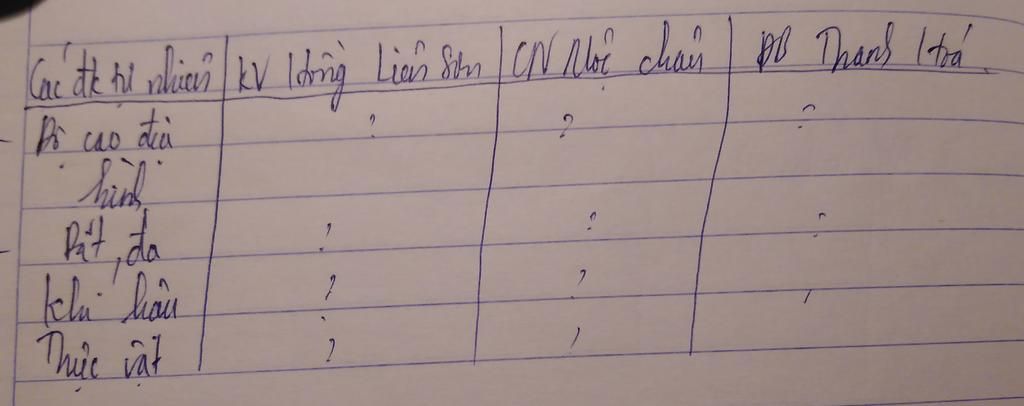 Các đk tự nhiên KV Hoàng Liên Sơn CN Mộc châu ĐB Thanh Hoá
Độ cao địa ? ? ?
hình
Đất, đá ? ? ?
Khí hậu ? ?
Thực vật ?